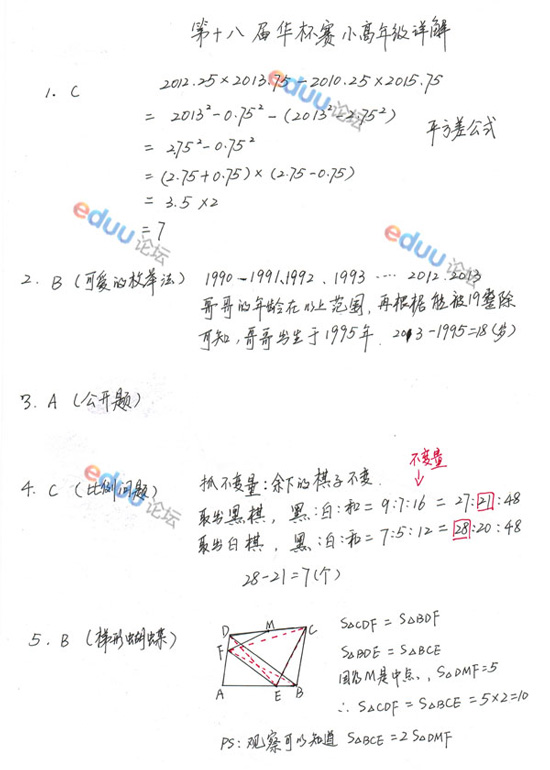 第十八届华杯赛小高年级详解
1. C 2012.25×2013.75-2010.25×2015.75
= 2013²-0.75²-(2013²-2.75²)
平方差公式
= 2.75²-0.75²
= (2.75+0.75)×(2.75-0.75)
= 3.5×2
= 7
2. B (可爱的枚举法) 1990-1991、1992、1993 …… 2012、2013
哥哥的年龄在以上范围，再根据能被19整除
可知，哥哥出生于1995年. 2013-1995=18(岁)
3. A (公开题)
不变量
4. C (比例问题) 抓不变量：余下的棋子不变.
取出黑棋，黑:白:和=9:7:16 = 27:21:48
取出白棋，黑:白:和=7:5:12 = 28:20:48
28-21=7(个)
5. B (梯形蝴蝶)
D M C
F
A E B
S△CDF = S△BDF
S△BDE = S△BCE
因为M是中点，S△DMF=5
∴ S△CDF = S△BCE = 5×2=10
PS: 观察可以知道 S△BCE = 2S△DMF
eduu论坛
eduu论坛
eduu论坛
eduu论坛
eduu论坛